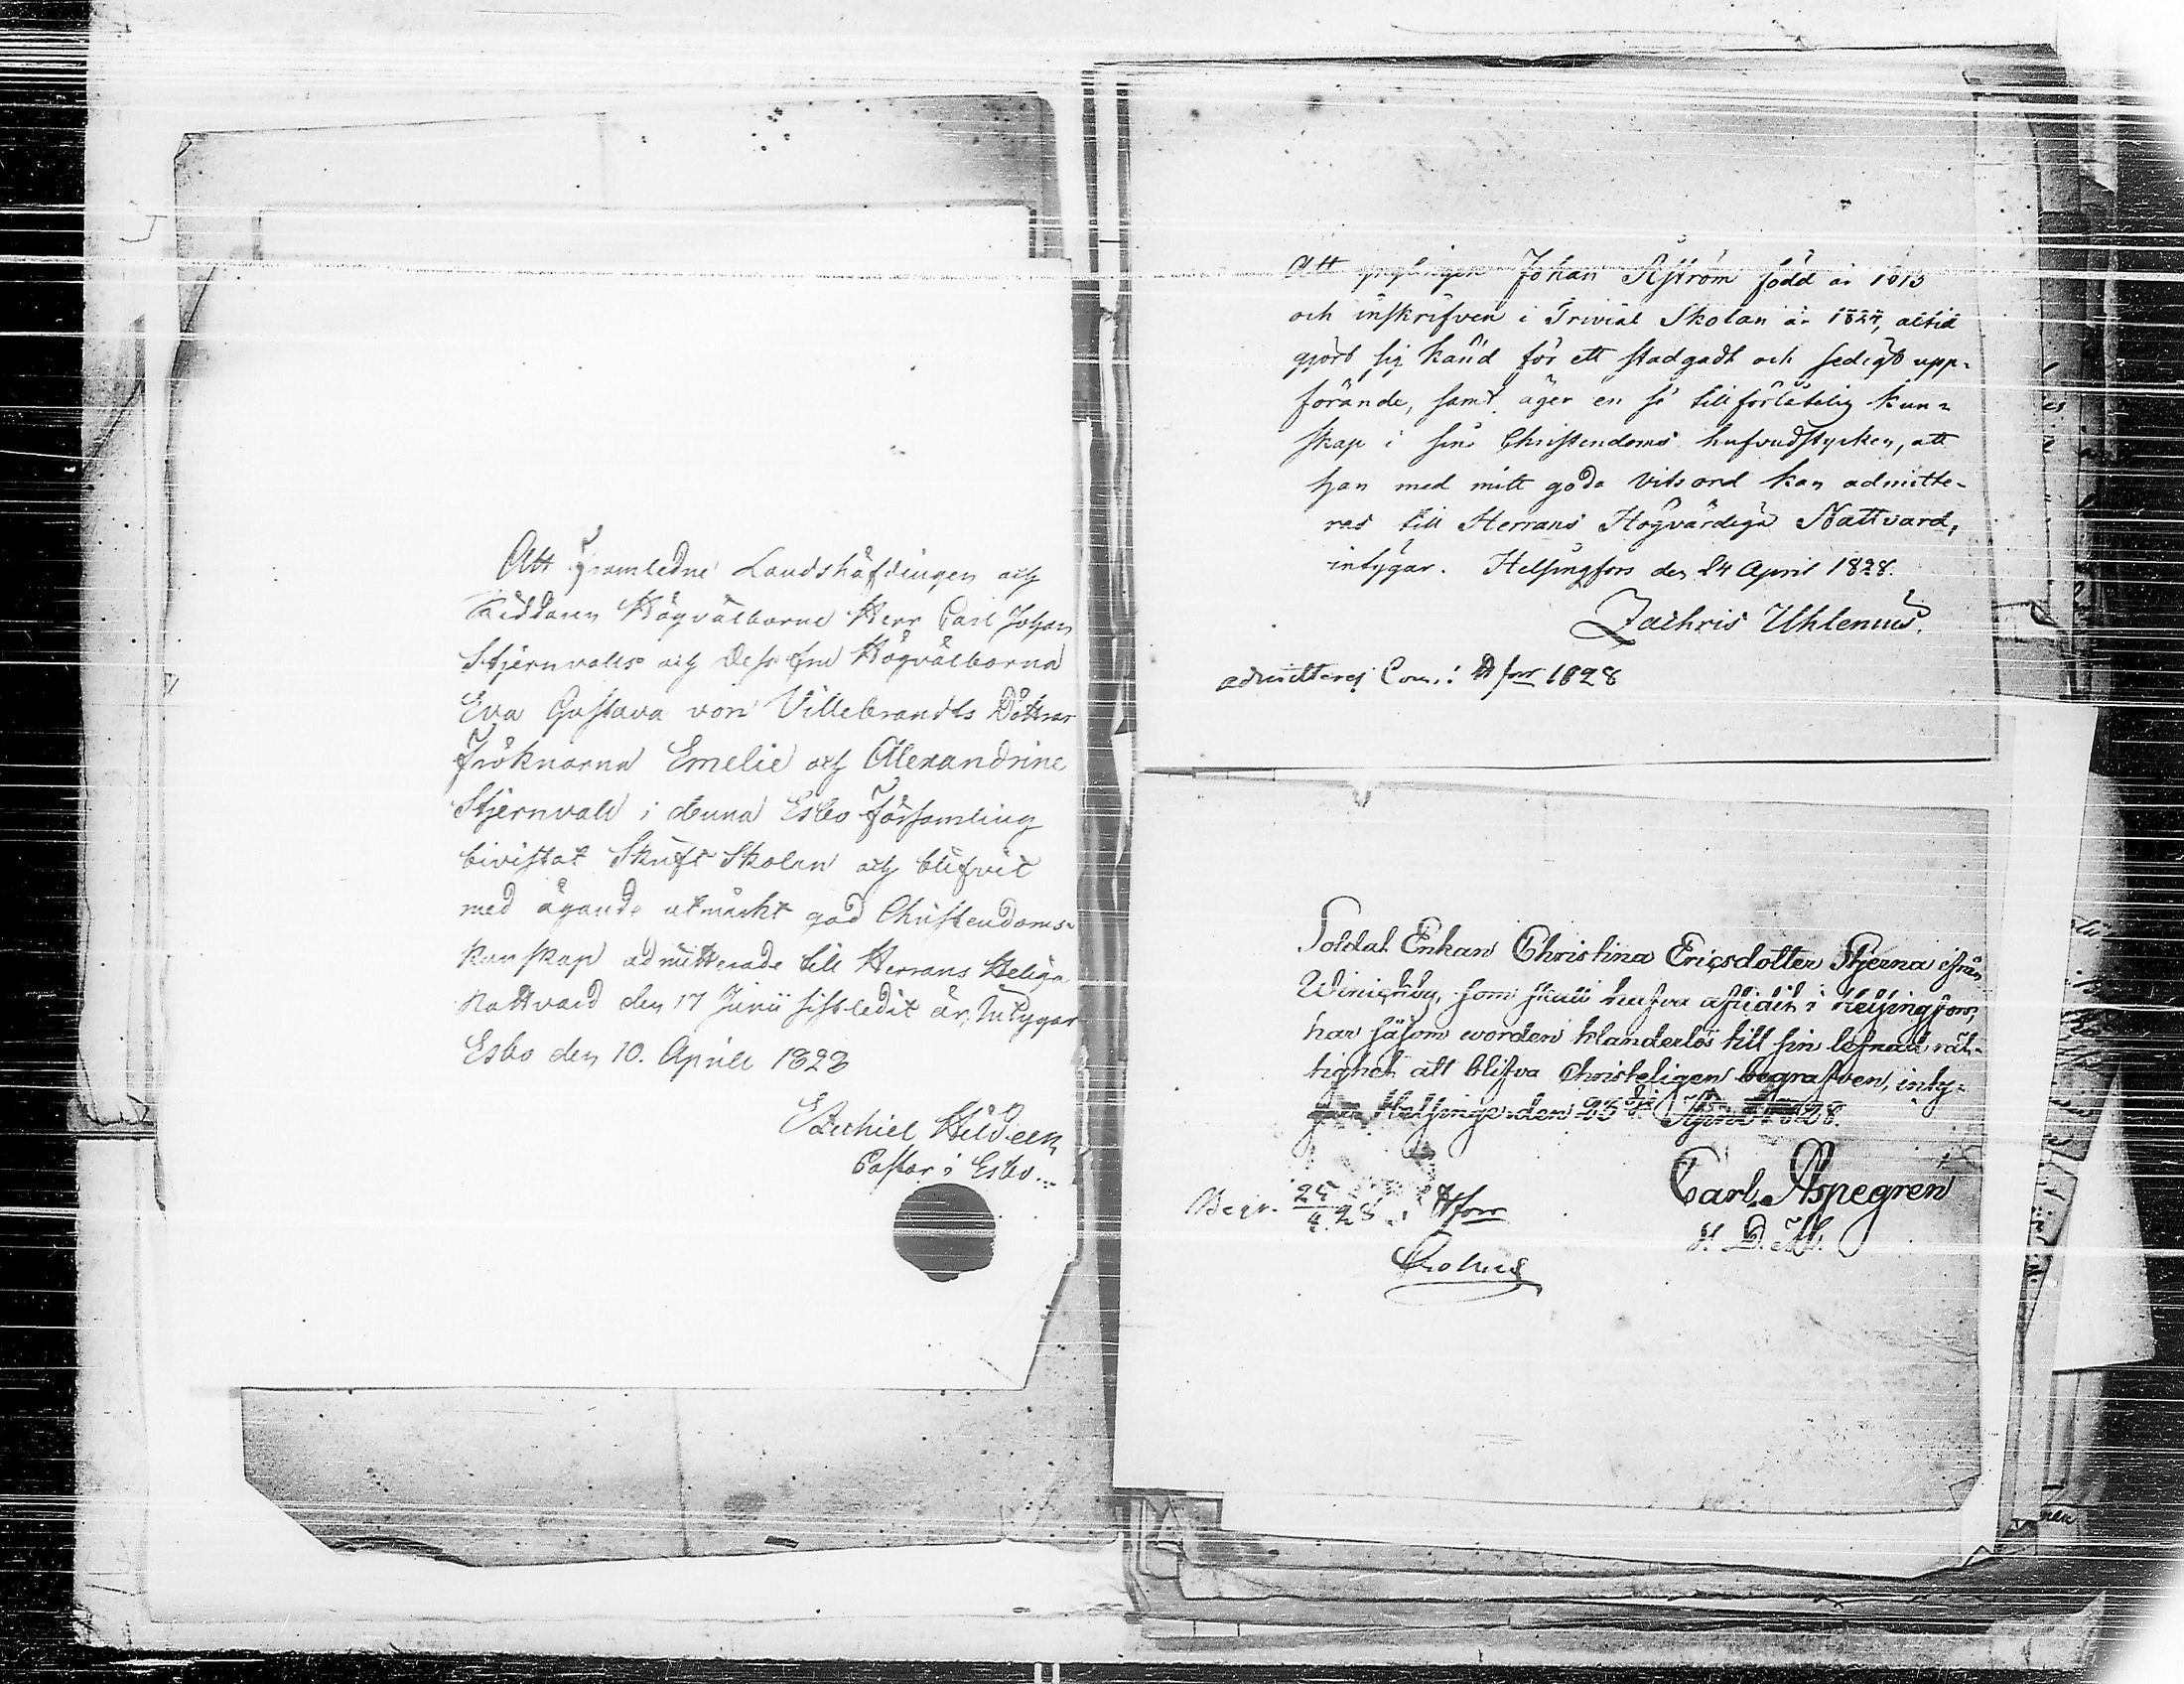 Att Framledne Landshöfdingen och
Riddaren Högvälborne Herr Carl Johan
Stjernvalls och Dess fru Högvälborna
Eva Gustava von Villebrandts Döttrar
Fröknarna Emelie och Alexandrine
Stjernvall i denna Esbo Församling
bivistat Skrift Skolan och blifvit
med ägande utmärkt god Christendoms-
kunskap admitterade till Herrans Heliga
Nattvard den 17 Junii sistledit år, Intygar
Esbo den 10. Aprill 1828
Ezechiel Hildeen
Pastor i Esbo
Att ynglingen Johan Åström född år 1813
och inskrifven i Trivial Skolan år 1824, altid
gjort sig känd för ett stadgadt och sedigt upp-
förande, samt äger en så tillförlåtelig kun-
skap i sina Christendoms hufvudstycken, att
han med mitt goda vitsord kan admitte-
ras till Herrans Högvärdiga Nattvard,
intygar. Helsingfors den 24 April 1828.
Zachris Uhlenius.
admitterej Com. i Hfors 1828
Soldat Enkan Christina Ericsdotter Stjerna ifrån
Winickby, som skall hafva aflidit i Helsingfors,
har såsom worden klanderlös till sin lefnad rät-
tighet att blifva Christeligen begrafven, inty-
gar Helsinge den 25 April 1828.
Carl Aspegren
V. D. M.
Begr. 25/4 28 i Hfors